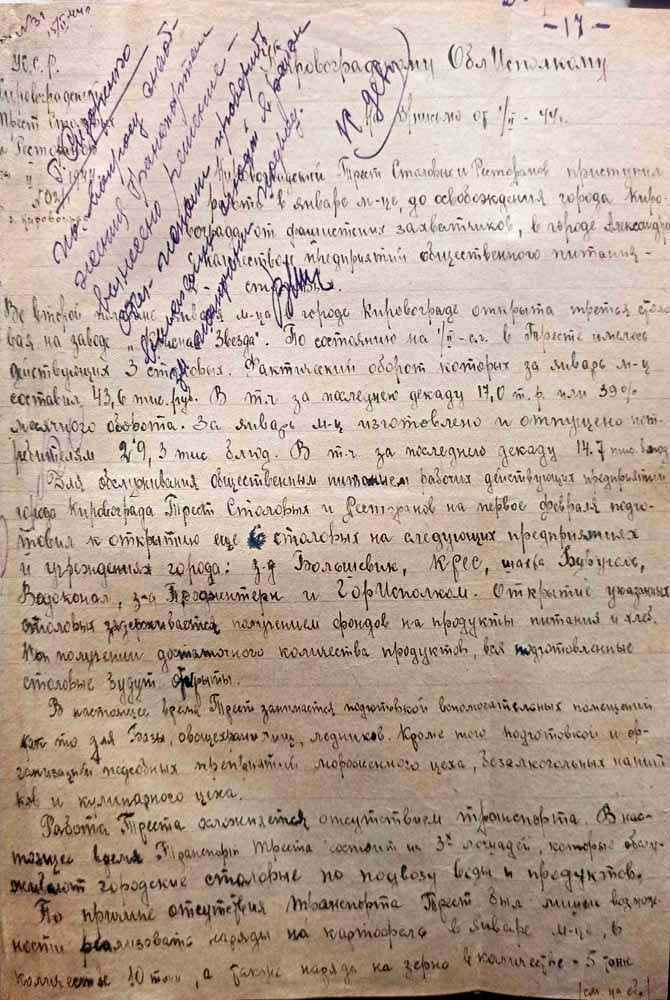 -17-
№ 31
15/II 44г.
У.С.С.Р.
Кировоградский
Трест Столовых
и Ресторанов
II 1944
г. Кировоград
Кировоградскому ОблИсполкому
На Письмо от 1/II - 44г.
К делу
по вопросу
транспортом
вынесено решение
проверить
Кировоградский - Трест Столовых и Ресторанов приступил
к работе в январе м-це, до освобождения города Киро-
вограда от фашистских захватчиков, в городе Александрия
с количеством предприятий общественного питания -
2 - столовых.
Во второй половине января м-ца в городе Кировограде открыта третья столо
вая на заводе "Красная Звезда". По состоянию на 1/II - с.г. в Тресте имелось
действующих 3 столовых. Фактический оборот которых за январь м-ц
составил 43,6 тыс. руб. В т.ч за последнею декаду 17,0 т. р. или 39%
месячного оборота. За январь м-ц изготовлено и отпущено пот-
ребителям 29,3 тыс блюд. В т.ч. за последнею декаду 14.7 тыс. блюд
Для обслуживания общественным питанием рабочих действующих предприятий
города Кировограда Трест Столовых и Ресторанов на первое февраля подго-
товил к открытию еще 6 столовых на следующих предприятиях
и учреждениях города: з-д Большевик, КРЕС, шахта Буруголь,
Водоканал, з-д Профинтерн и ГорИсполком. Открытие указанных
столовых задерживается получением фондов на продукты питания и хлеб.
При получении достаточного количества продуктов, все подготовленные
столовые будут открыты.
В настоящее время Трест занимается подготовкой вспомогательных помещений
как то для Базы, овощехранилищ, ледников. Кроме того подготовкой и ор-
ганизацией подсобных предприятий мороженного цеха, безалкогольных напит
ков и кулинарного цеха.
Работа Треста осложняется отсутствием транспорта. В нас-
тоящее время Транспорт Треста состоит из 3х лошадей, которые обслу-
живают городские столовые по подвозу воды и продуктов.
По причине отсутствия транспорта Трест был лишен возмож-
ности реализовать наряды на картофель в январе м-це, в
количестве 10 тонн, а также наряда на зерно в количестве - 5 тонн
(см. на об.)